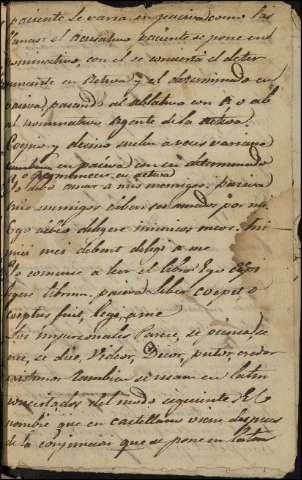 paciente se varia en pasiva como las
llanas: el acusativo paciente se pone en
nominativo, con el se concierta el deter
minante en activa, y el determinado en
pasiva, pasando al ablativo con A, o ab
el nominativo agente de la activa.
Coepi, y desino suelen a veces variarse
tambien en pasiva con su determinado
y o permanecer en activa
Yo debo amar a mis enemigos. pasiva
mis enemigos deben ser amados por mi
Ego debeo diligere inimicos meos. Ini
mici mei debent diligi a me
Yo comence a leer el libro. Ego coepi
legere librum. pasiva liber coepit o
coeptus fuit, legi, a me
Los impersonales Parece, se piensa, se
cree, se dice, Videor, Dicor, putor, credor
existimor tambien se usan en latin
concertados del modo siguiente. El
nombre que en castellano viene despues
de la conjuncion que se pone en latin